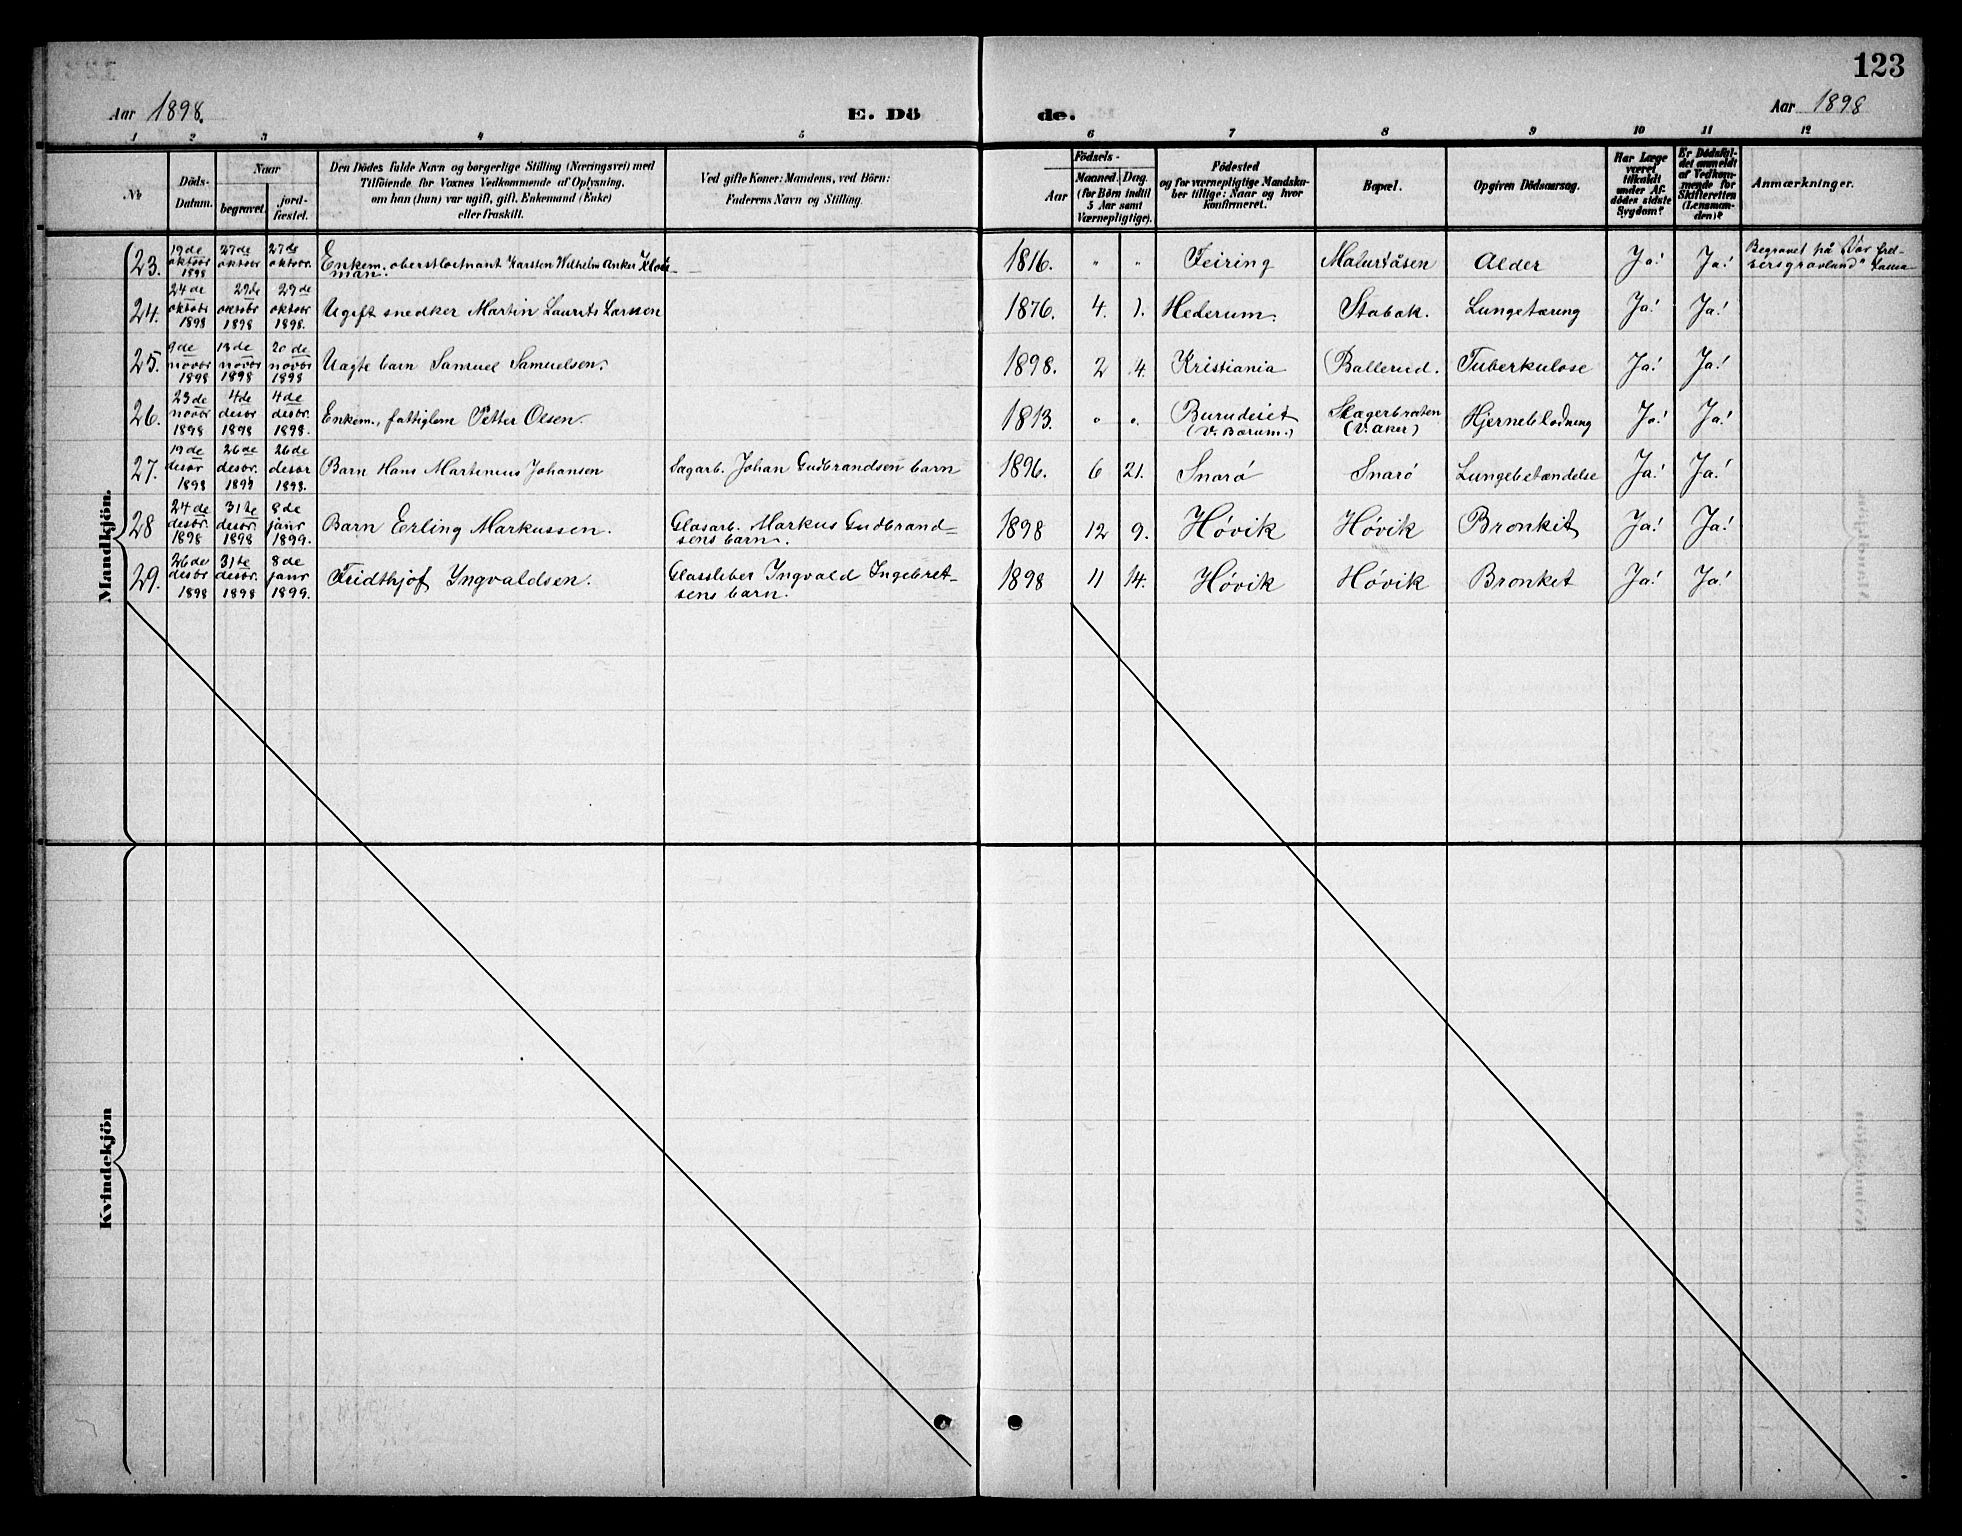 123
Aar 1898.
E. Dö
de.
Aar 1898
1 2 3 4 5 6 7 8 9 10 11 12
№
Döds-
Datum.
Naar
begravet.
jord-
fæstet.
Den Dödes fulde Navn og borgerlige Stilling (Næringsvei) med
Tilföiende for Voxnes Vedkommende af Oplysning,
om han (hun) var ugift, gift, Enkemand (Enke)
eller fraskilt.
Ved gifte Koner: Mandens, ved Börn:
Faderens Navn og Stilling.
Födsels-
Aar
Maaned Dag.
(for Börn indtil
5 Aar samt
Værnepligtige).
Födested
og for værnepligtige Mandska-
ber tillige: Naar og hvor
konfirmeret.
Bopæl.
Opgiven Dödsaarsag.
Har Læge
været
tilkaldt
under Af-
dödes sidste
Sygdom?
Er Dödsfal-
det anmeldt
af Vedkom-
mende for
Skifteretten
(Lensman-
den)?
Anmærkninger.
Mandkjön.
23. 19de oktobr 1898 27de oktobr 27de oktobr. Enkem. oberstlöitnant Karsten Wilhelm Anker 1816. " " Feiring Alder Ja! Ja! Begravet på Vor
man.
24. 24de oktobr 1898 29de oktobr 1898 29de oktobr 1898. Ugift snedker Martin Laurits Larssen 1876. 4. 1. Hederum. Stabæk. Lungetæring Ja! Ja!
25. 9de novbr 1898 13de novbr 1898 20de novbr 1898 Uægte barn Samuel Samuelsen. 1898. 2 4. Kristiania Ballerud. Tuberkulose Ja! Ja!
26. 23de novbr 1898 4de desbr 1898 4de desbr. 1898. Enkem., fattiglem Petter Olsen. 1813. " " (V. Bærum.) (V. Aker) Hjerneblødning Ja! Ja!
27. 19de desbr 1898 26de desbr. 1898 26de desbr 1898. Barn Hans Martinius Johansen Sagarb. Johan Gudbrandsen barn 1896. 6 21. Snarø Snarø Lungebetændelse Ja! Ja!
28 24de desbr. 1898 31te desbr. 1898 8de janr 1899. Barn Erling Markussen. Glasarb. Markus Gudbrand- 1898 12 9. Høvik Høvik Bronkit Ja! Ja!
sens barn.
29. 26de desbr 1898 31te desbr. 1898 8de janr 1899. Fridthjof Yngvaldsen. Glassliber Ingvald Ingebret- 1898 11 14. Høvik Høvik Bronkit Ja! Ja!
sens barn.
Kvindekjön